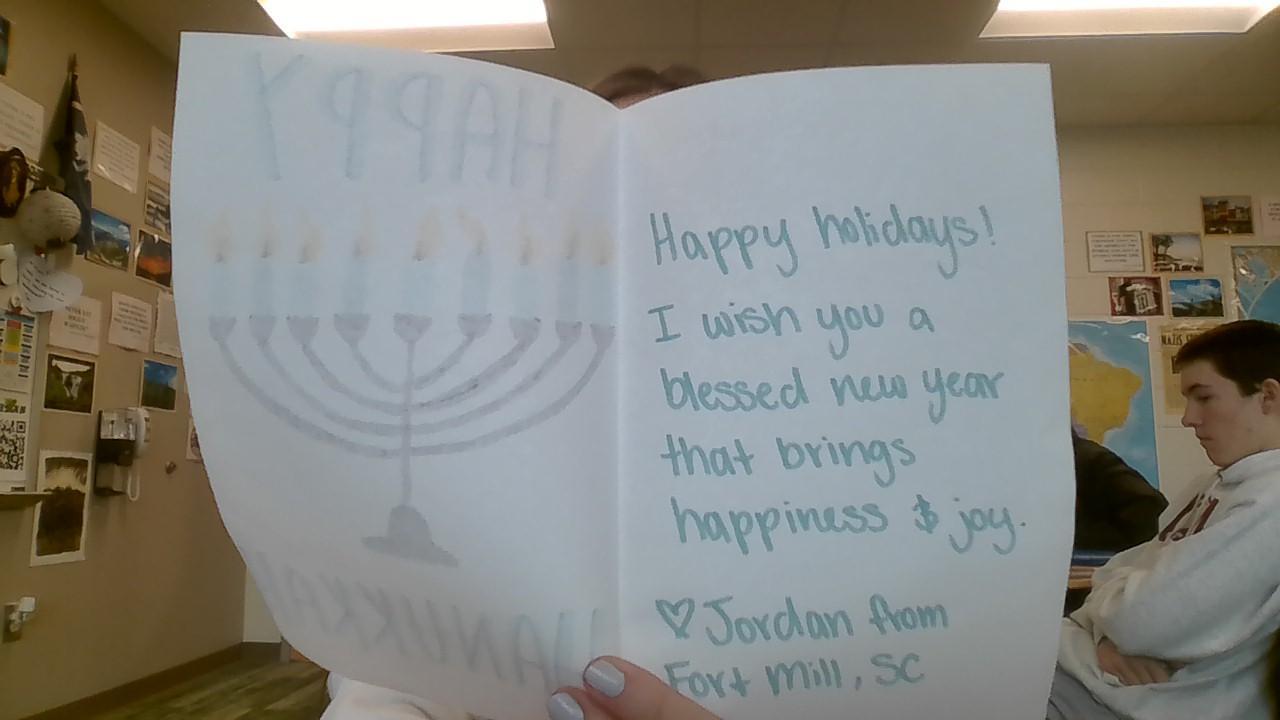 HAPPY
HANUKKAH
Happy holidays!
I wish you a
blessed new year
that brings
happiness & joy.
♡ Jordan from
Fort Mill, SC
NAZIS